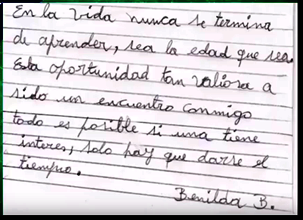 En la vida nunca se termina
de aprender, sea la edad que sea.
Esta oportunidad tan valiosa a
sido un encuentro conmigo
todo es posible si una tiene
interes, solo hay que darse el
tiempo.
Benilda B.